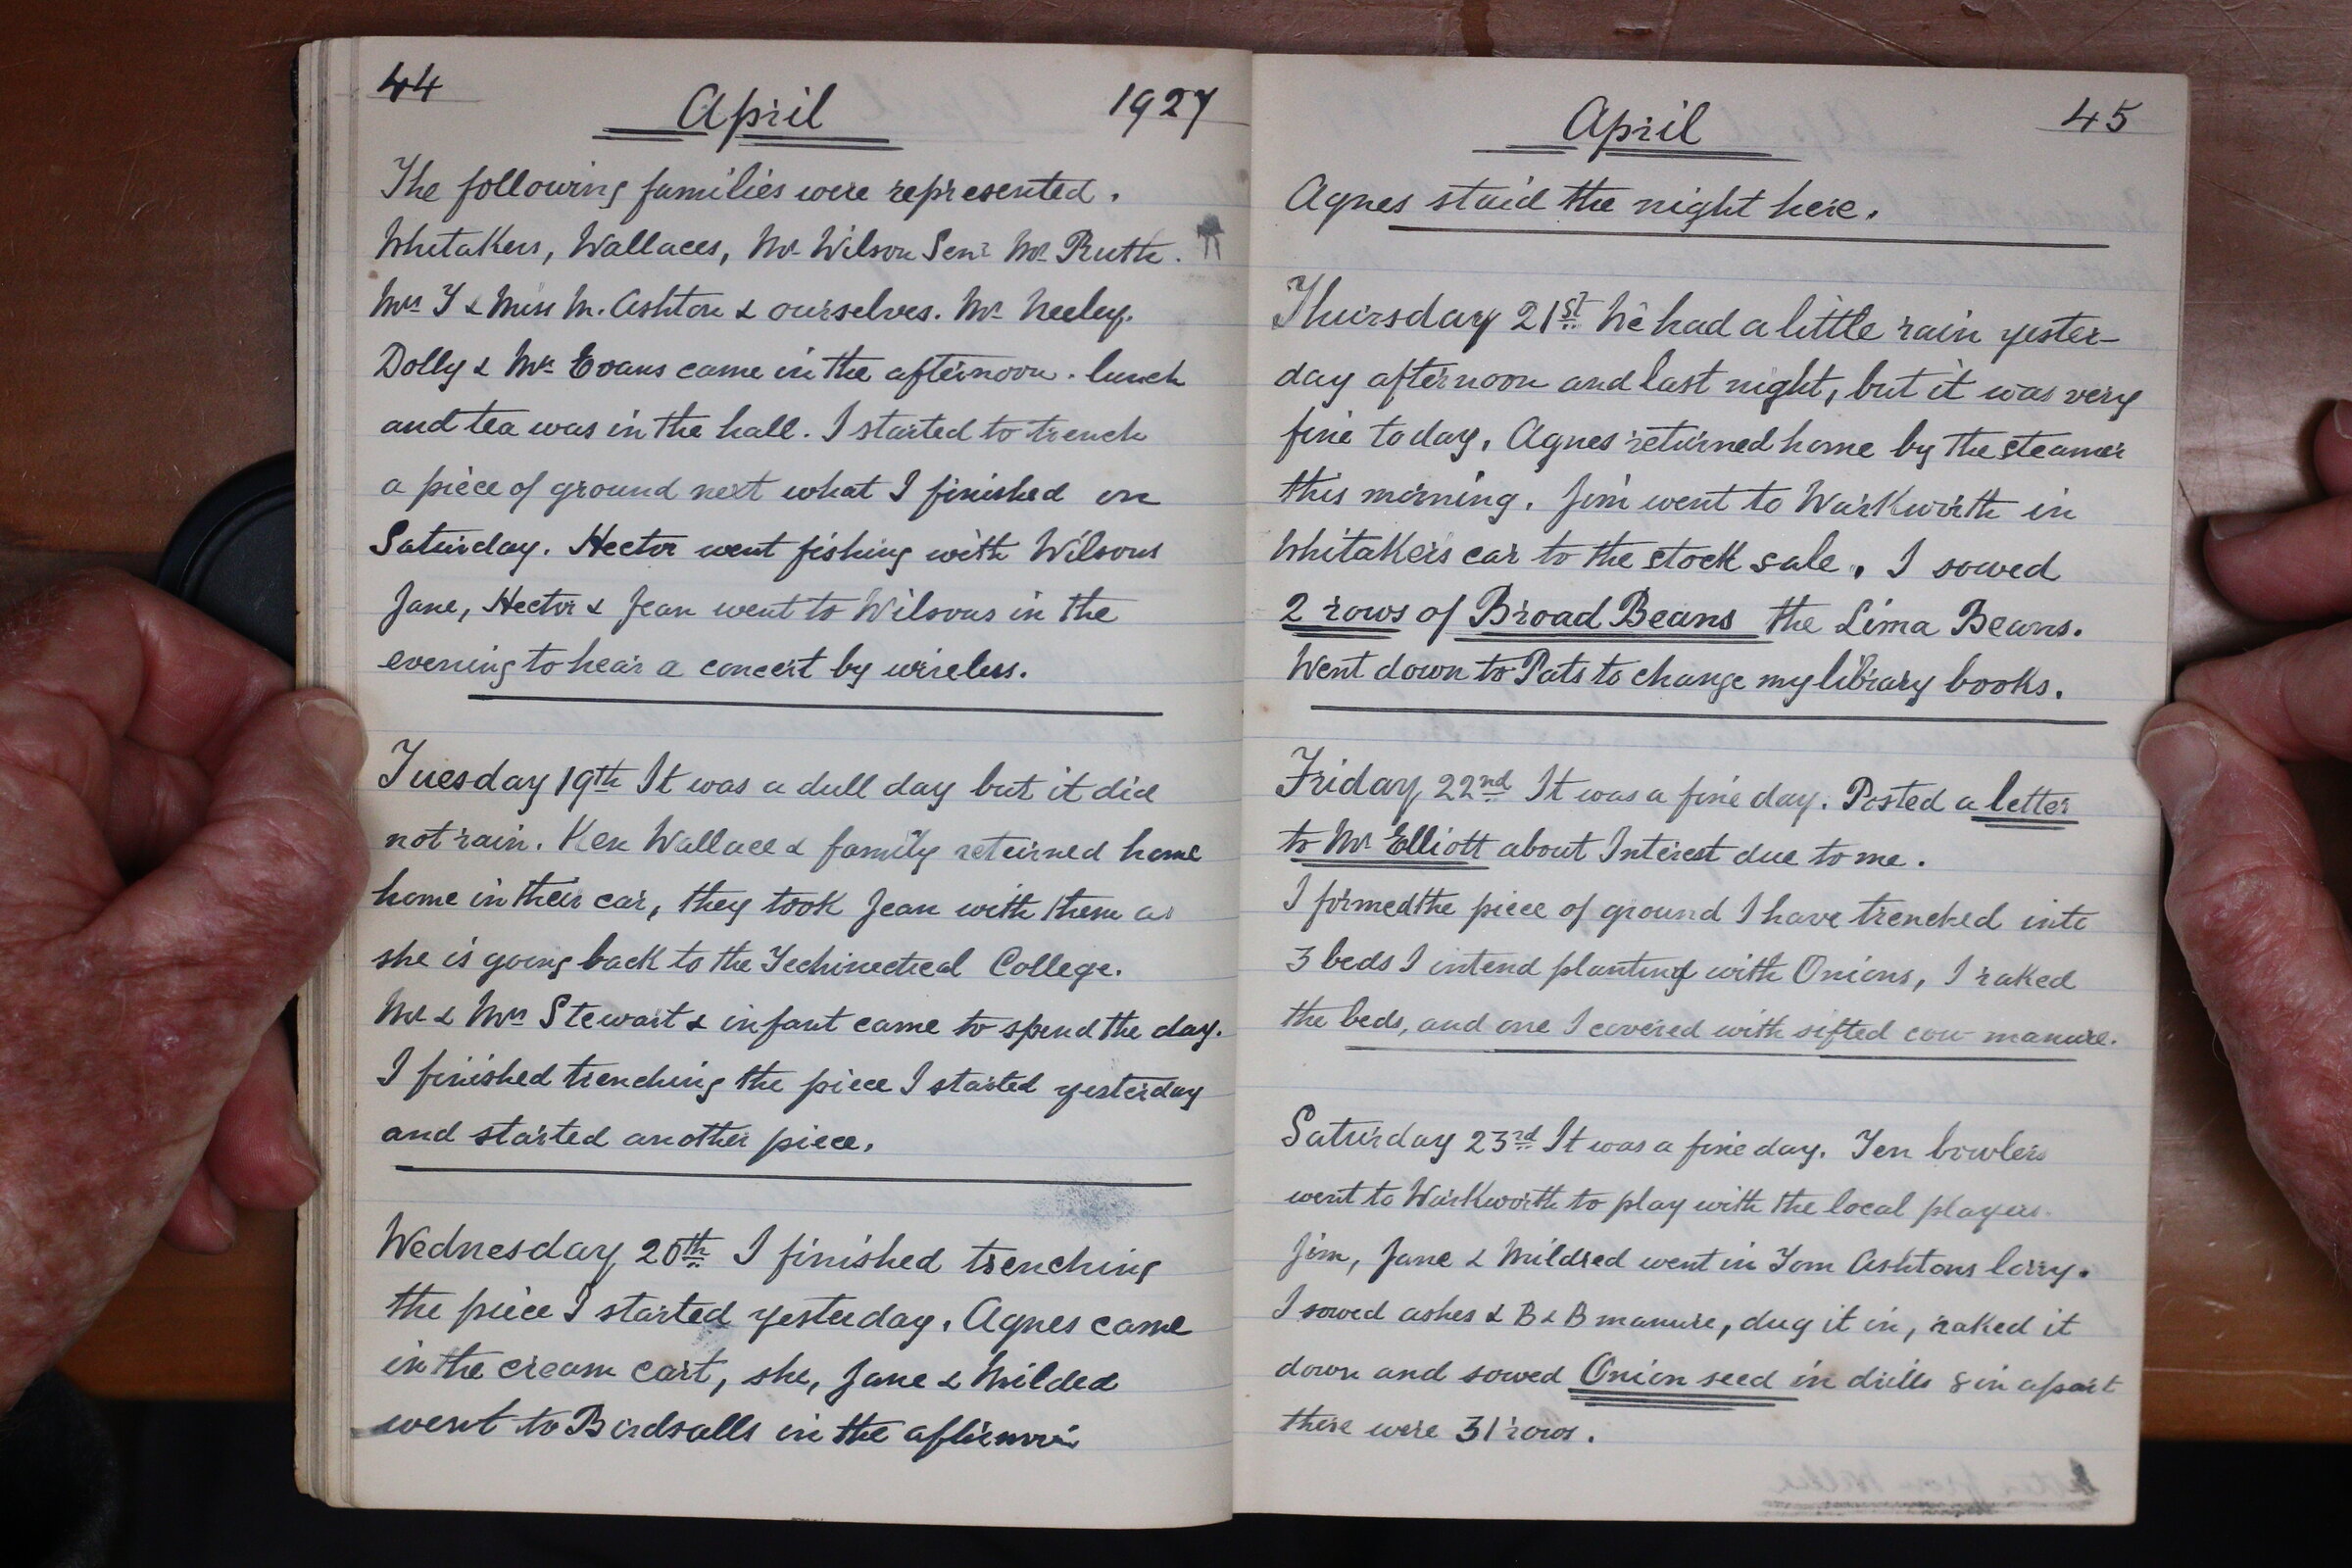 44
April
1927
The following families were represented.
Whitakers, Wallaces, Mr Wilson Senr Mr Ruth.
Mrs T & Miss M. Ashton & ourselves. Mr Neeley.
Dolly & Mrs Evans came in the afternoon. lunch
and tea was in the hall. I started to trench
a piece of ground next what I finished on
Saturday. Hector went fishing with Wilsons
Jane, Hector & Jean went to Wilsons in the
evening to hear a concert by wireless.
Tuesday 19th It was a dull day but it did
not rain. Ken Wallace & family returned home
home in their car, they took Jean with them as
she is going back to the College.
Mr & Mrs Stewart & infant came to spend the day.
I finished trenching the piece I started yesterday
and started another piece.
Wednesday 20th I finished trenching
the piece I started yesterday. Agnes came
in the cream cart, she, Jane & Milded
went to Birdsalls in the afternoon
April
45
Agnes staid the night here.
Thursday 21st We had a little rain yester-
day afternoon and last night, but it was very
fine today. Agnes returned home by the steamer
this morning. Jim went to Warkworth in
Whitakers car to the stock sale. I sowed
2 rows of Broad Beans the Lima Beans.
Went down to Pats to change my library books.
Friday 22nd It was a fine day. Posted a letter
to Mr Elliott about Interest due to me.
I formed the piece of ground I have trenched into
3 beds I intend planting with Onions, I raked
the beds, and one I covered with sifted cow manure.
Saturday 23rd It was a fine day. Ten bowlers
went to Warkworth to play with the local players.
Jim, Jane & Mildred went in Tom Ashtons lorry.
I sowed ashes & B & B manure, dug it in, raked it
down and sowed Onion seed in drills 8 in apart
there were 31 rows.